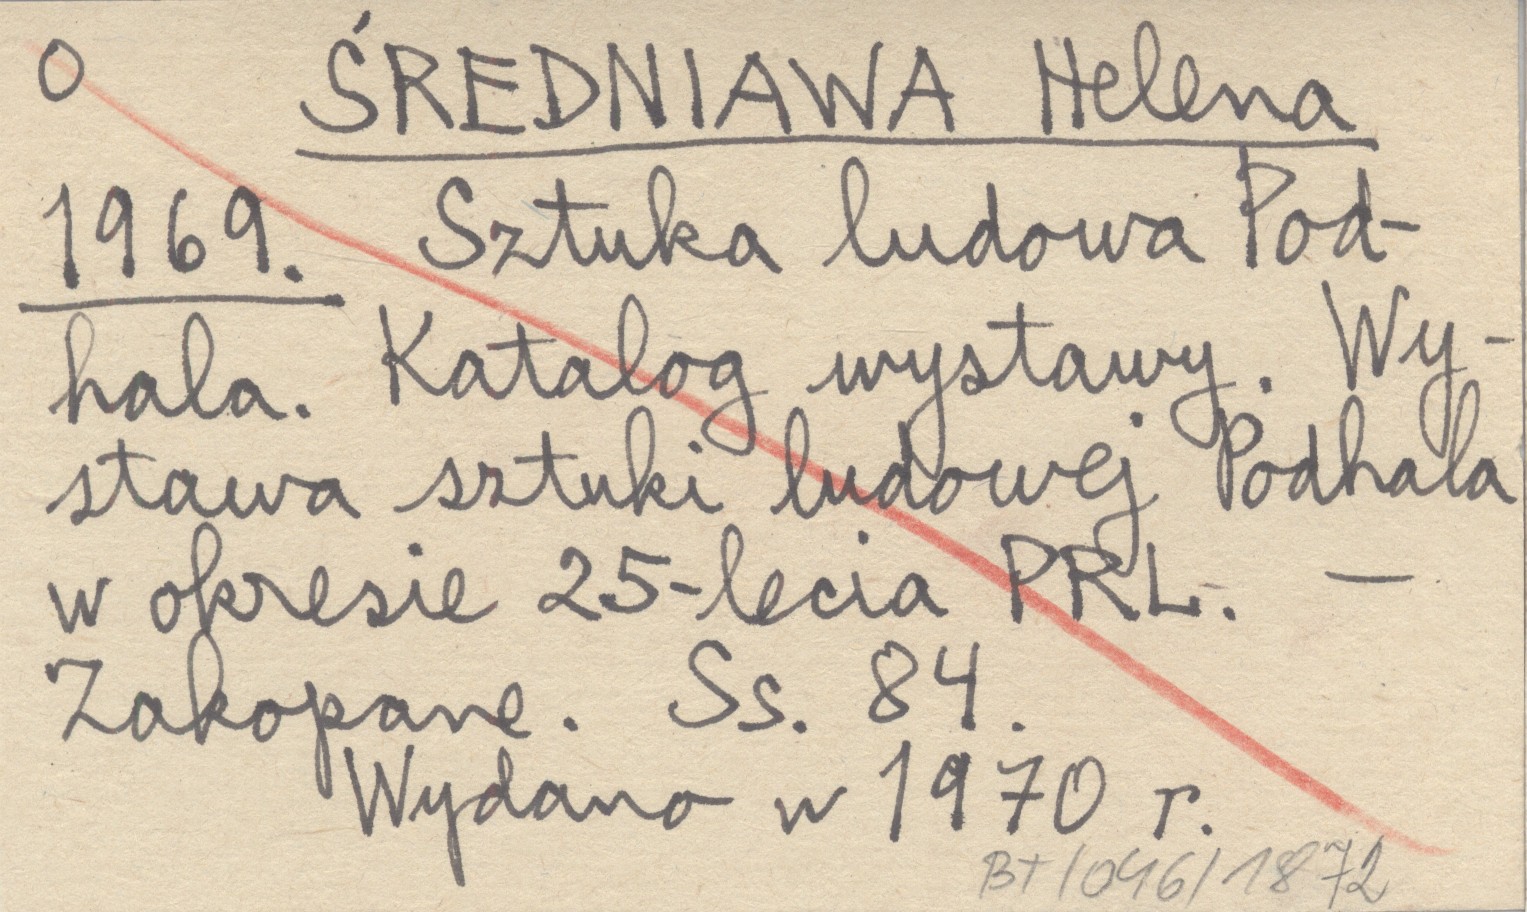 O ŚREDNIAWA Helena
1969. Sztuka ludowa Pod-
hala. Katalog wystawy. Wy-
stawa sztuki ludowej Podhala
w okresie 25-lecia PRL. —
Zakopane. Ss. 84.
Wydano w 1970 r.
BT/046/1872